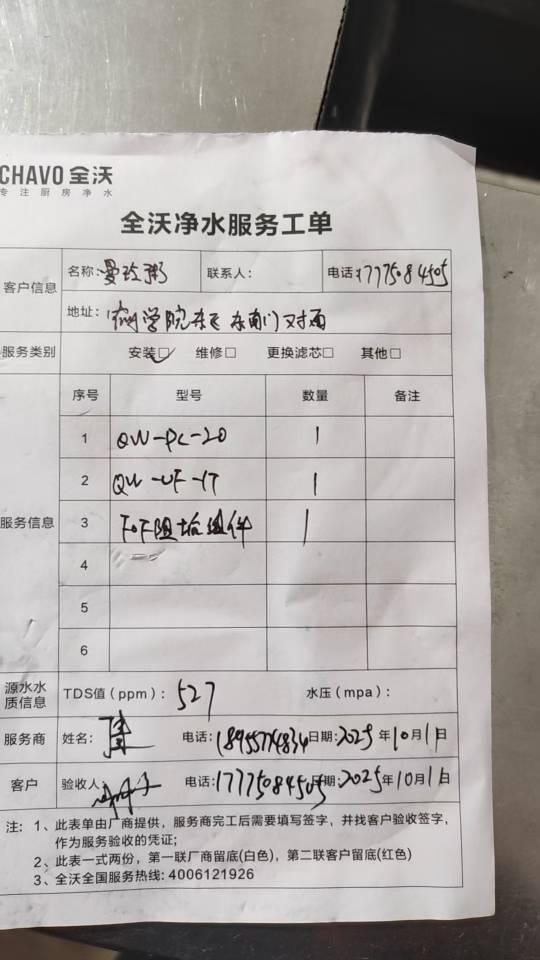 CHAVO 全沃
专注厨房净水
全沃净水服务工单
客户信息 名称：曼玲粥 联系人： 电话：17775084505
地址：宿州学院东区东南门对面
服务类别 安装☑ 维修□ 更换滤芯□ 其他□
服务信息 序号 型号 数量 备注
1 QW-PC-20 1
2 QW-UF-1T 1
3 FOF阻垢组件 1
4
5
6
源水水质信息 TDS值（ppm）：527 水压（mpa）：
服务商 姓名： 电话：18955774834 日期：2025年10月1日
客户 验收人： 电话：17775084505 日期：2025年10月1日
注：1、此表单由厂商提供，服务商完工后需要填写签字，并找客户验收签字，
作为服务验收的凭证；
2、此表一式两份，第一联厂商留底(白色)，第二联客户留底(红色)
3、全沃全国服务热线：4006121926